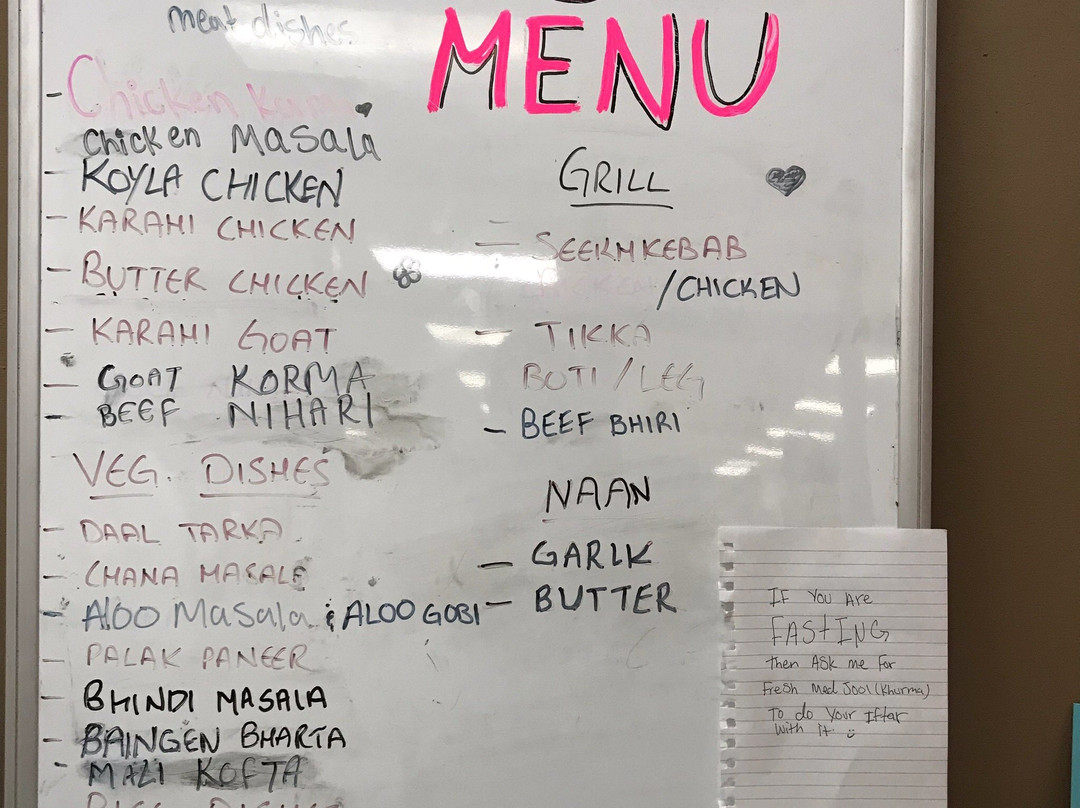 meat dishes
MENU
- Chicken
Chicken Masala
- KOYLA CHICKEN
- KARAHI CHICKEN
- BUTTER CHICKEN
- KARAHI GOAT
- GOAT KORMA
- BEEF NIHARI
VEG. DISHES
- DAAL TARKA
- CHANA MASALE
- ALOO Masala & ALOO GOBI
- PALAK PANEER
- BHINDI MASALA
- BAINGEN BHARTA
- MALI KOFTA
GRILL
- SEEKH KEBAB
/CHICKEN
- TIKKA
BOTI/LEG
- BEEF BHIRI
NAAN
- GARLIK
- BUTTER
IF YOU ARE
FAStING
then ASk me For
Fresh Med Jool (khurma)
To do Your Iftar
With it